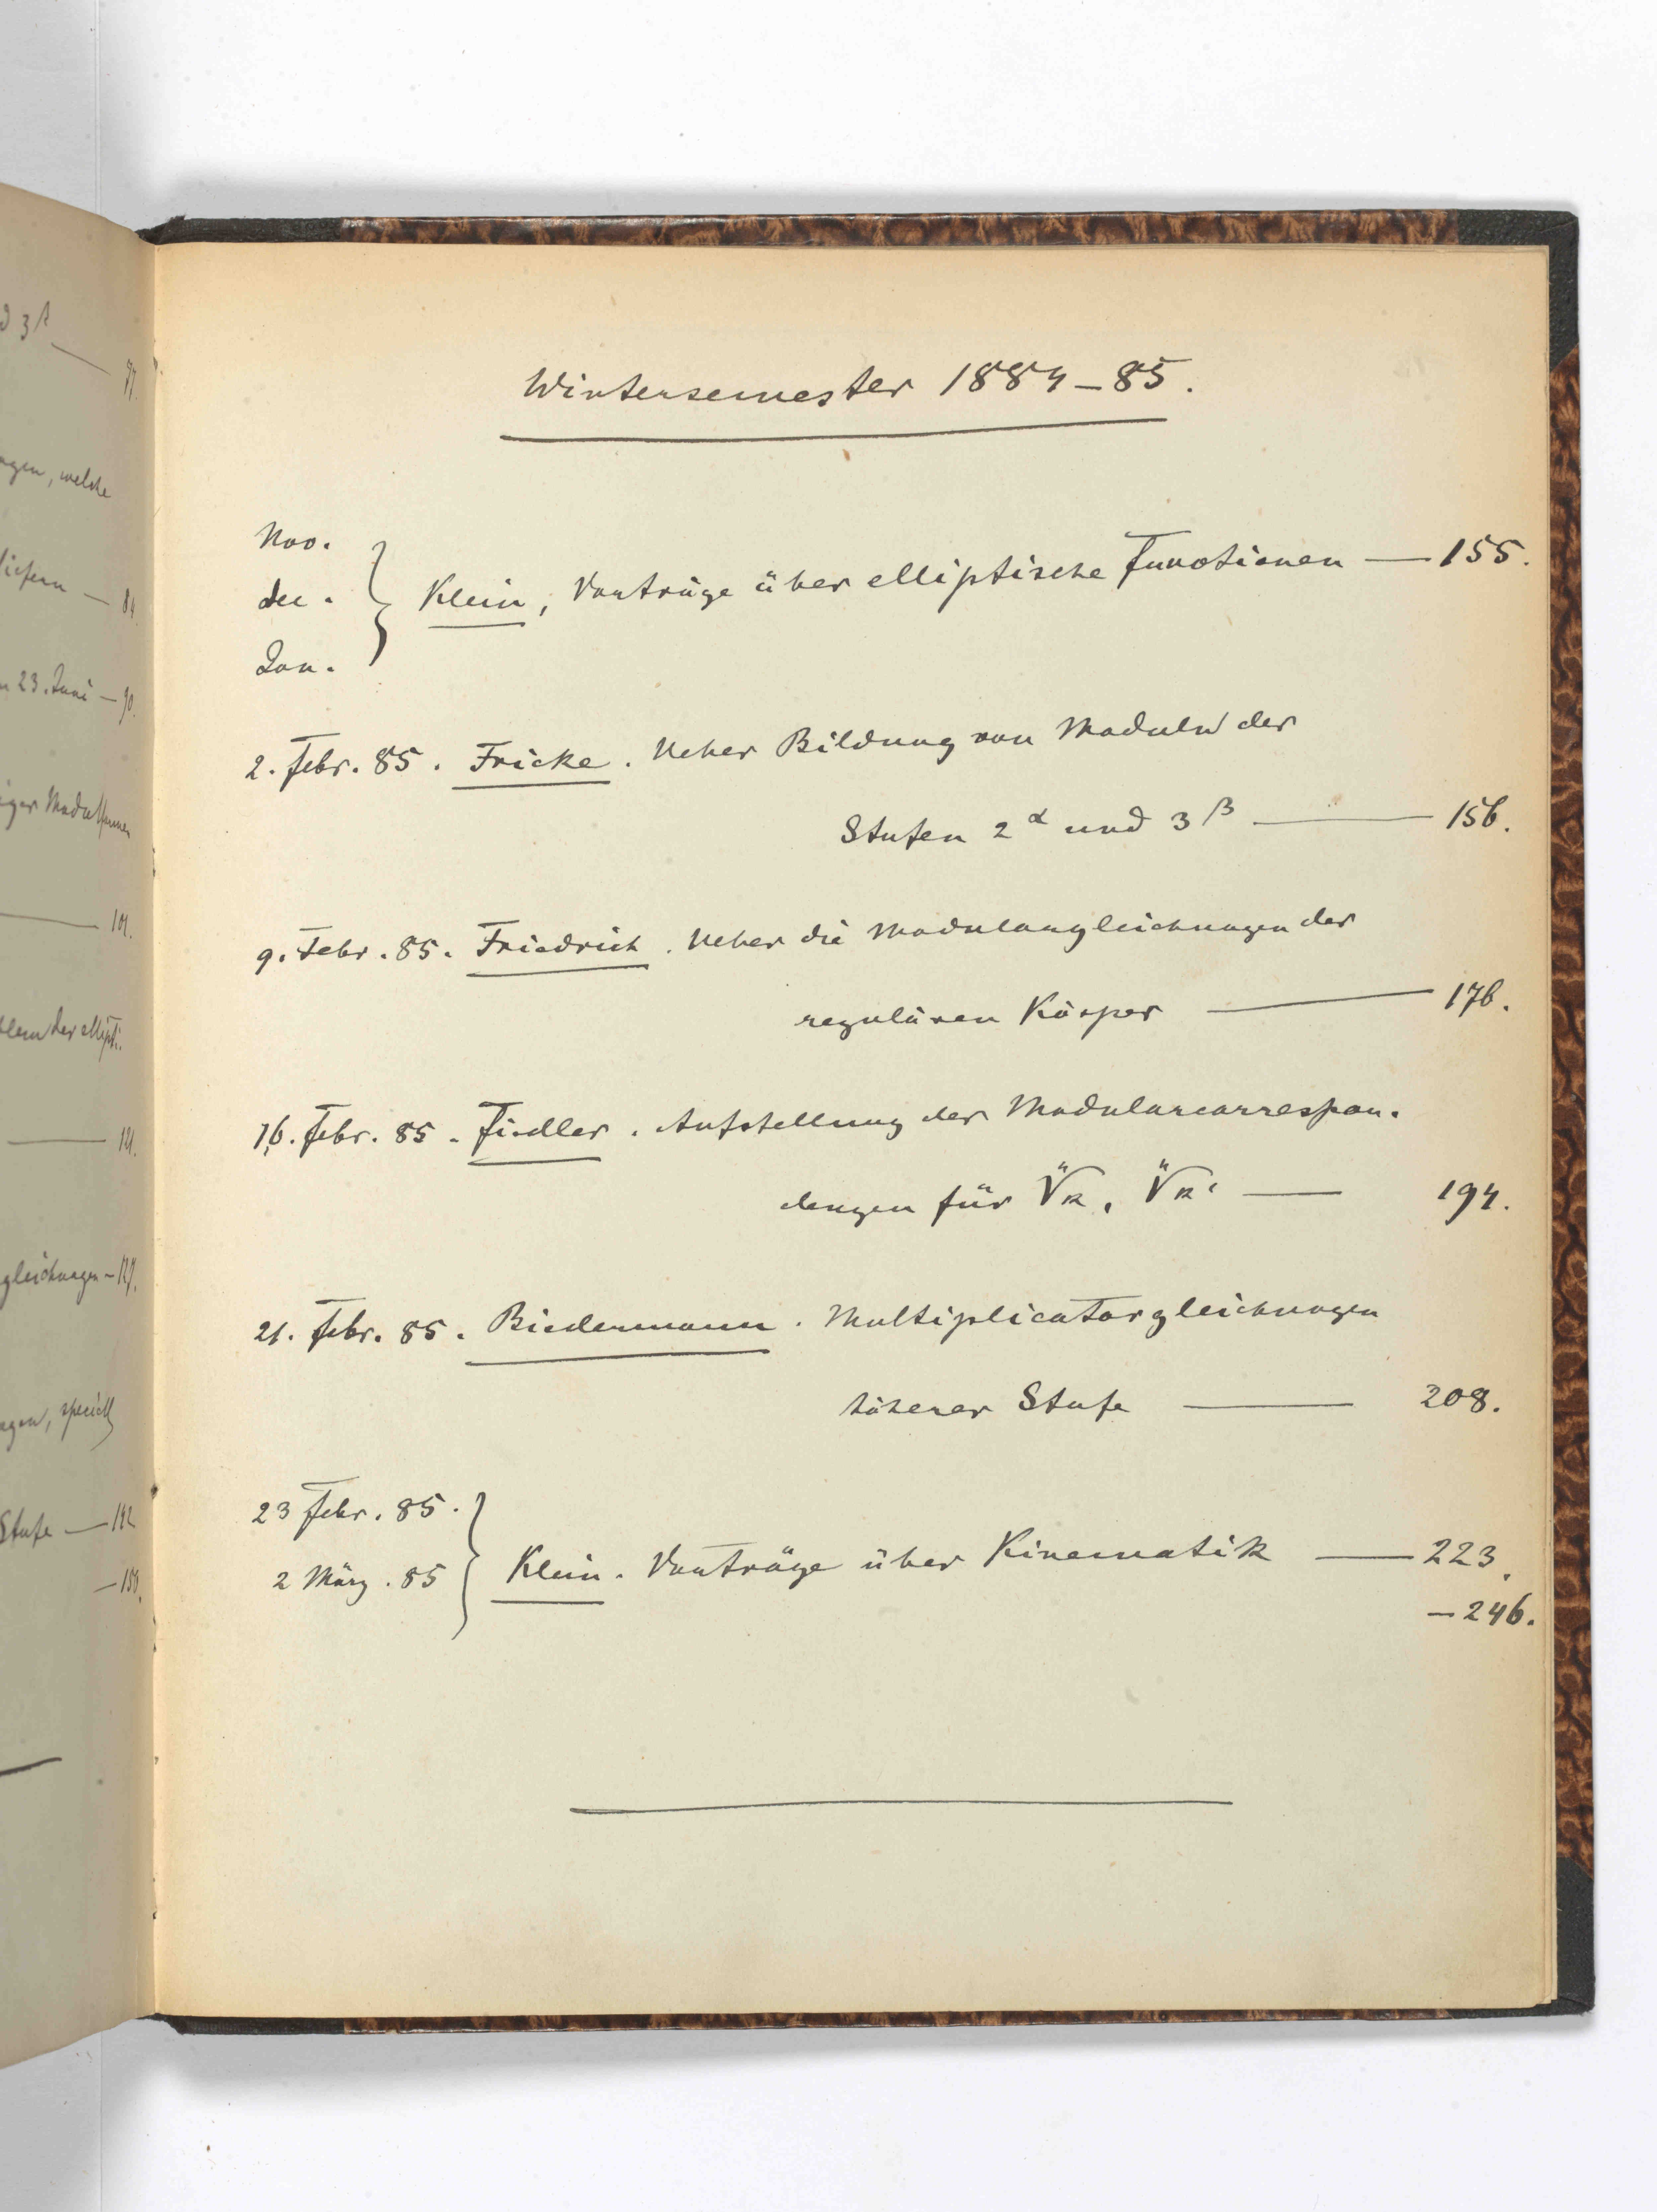 d 3β
77.
ngen, welche
liefern — 84.
23. Juni — 90.
iger Modulformen
— 101.
blem der ellipti.
— 121.
gleichungen — 127.
ngen, speciell
Stufe — 142
— 150.
Wintersemester 1884–85.
Nov.
dec.
Jan.
Klein, Vorträge über elliptische Functionen — 155.
2. Febr. 85. Fricke. Ueber Bildung von Moduln der
Stufen 2^α und 3^β — 156.
9. Febr. 85. Friedrich. Ueber die Modulargleichungen der
regulären Körper — 176.
16. Febr. 85. Fiedler. Aufstellung der Modularcorrespon.
denzen für ⁿ√k, ⁿ√k' — 194.
21. Febr. 85. Biedermann. Multiplicatorgleichungen
höherer Stufe — 208.
23 Febr. 85.
2 März. 85
Klein. Vorträge über Kinematik — 223.
— 246.